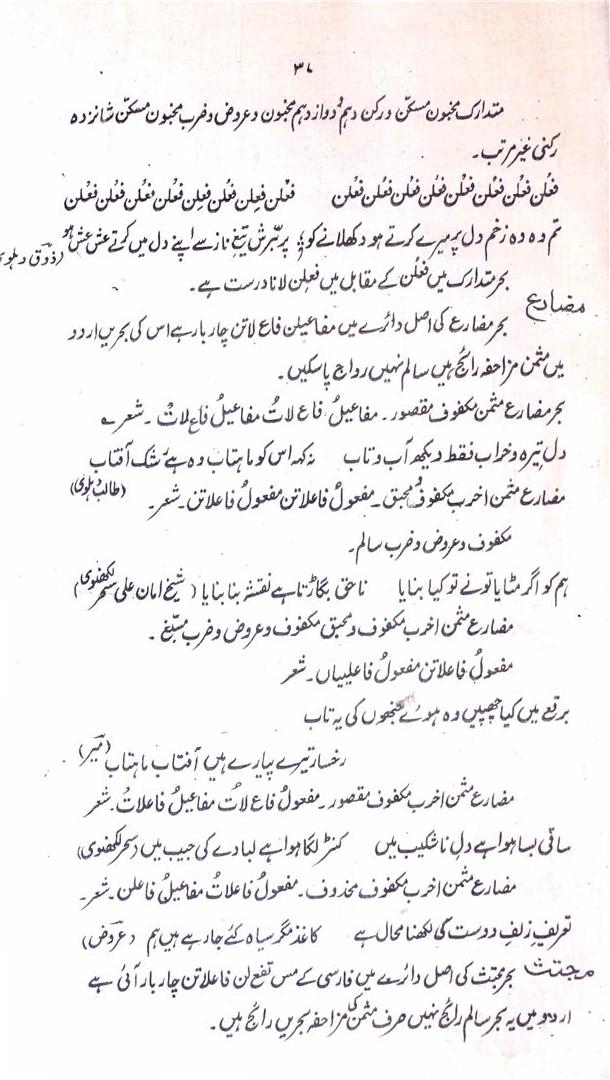 ۳۷
متدارک مخبون مسکّن در رکن دہم و دوازدہم مخبون و عروض و ضرب مخبون مسکّن شانزدہ
رکنی غیر مرتب۔
فعْلن فعْلن فعْلن فعْلن فعْلن فعْلن فعْلن فعْلن فعْلن فعِلن فعْلن فعِلن فعْلن فعْلن فعْلن فعْلن
تم وہ وہ زخم دل پر میرے کرتے ہو دکھلانے کو پر بُرّش تیغِ ناز سے اپنے دل میں کرتے عش عش ہو (ذوق دہلوی)
بحر متدارک میں فعْلن کے مقابل میں فعِلن لانا درست ہے۔
مضارع
بحر مضارع کی اصل دائرے میں مفاعیلن فاع لاتن چار بار ہے اس کی بحریں اردو
میں مثمن مزاحفہ رائج ہیں سالم نہیں رواج پا سکیں۔
بحر مضارع مثمن مکفوف مقصور۔ مفاعیلُ فاع لاتُ مفاعیلُ فاع لاتْ۔ شعر
دل تیرہ و خراب فقط دیکھ آب و تاب نہ کہہ اس کو ماہتاب وہ ہے رشک آفتاب
(طالب دہلوی)
مضارع مثمن اخرب مکفوف محبق۔ مفعولُ فاعلاتن مفعولُ فاعلاتن۔ شعر۔
مکفوف و عروض و ضرب سالم۔
ہم کو اگر مٹایا تو نے تو کیا بنایا ناحق بگاڑتا ہے نقشہ بنا بنایا (شیخ امان علی سحر لکھنوی)
مضارع مثمن اخرب مکفوف و محبق مکفوف و عروض و ضرب مسبّغ۔
مفعولُ فاعلاتن مفعولُ فاعلییاں۔ شعر
برقع میں کیا چھپیں وہ ہوئے جنھوں کی یہ تاب
رخسار تیرے پیارے ہیں آفتاب ماہتاب (میر)
مضارع مثمن اخرب مکفوف مقصور۔ مفعولُ فاع لاتُ مفاعیلُ فاعلاتْ۔ شعر
ساقی بسا ہوا ہے دلِ ناشکیب میں کنٹر لگا ہوا ہے لبادے کی جیب میں (سحر لکھنوی)
مضارع مثمن اخرب مکفوف محذوف۔ مفعولُ فاعلاتُ مفاعیلُ فاعلن۔ شعر۔
تعریفِ زلفِ دوست کی لکھنا محال ہے کاغذ مگر سیاہ کئے جا رہے ہیں ہم (عروض)
مجتث
بحر مجتث کی اصل دائرے میں فارسی کے مس تفع لن فاعلاتن چار بار آئی ہے
اردو میں یہ بحر سالم رائج نہیں صرف مثمن کی مزاحفہ بحریں رائج ہیں۔